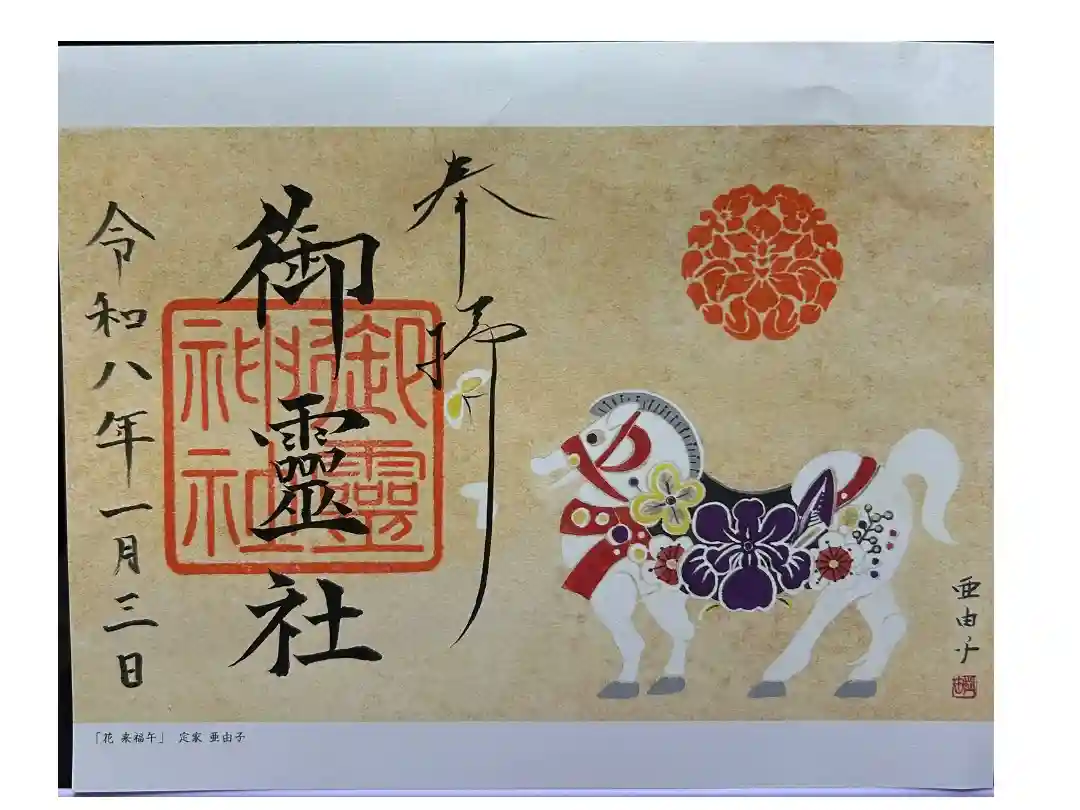 奉拝
御靈社
御靈神社
令和八年一月三日
亜由子
「花 来福午」 定家 亜由子